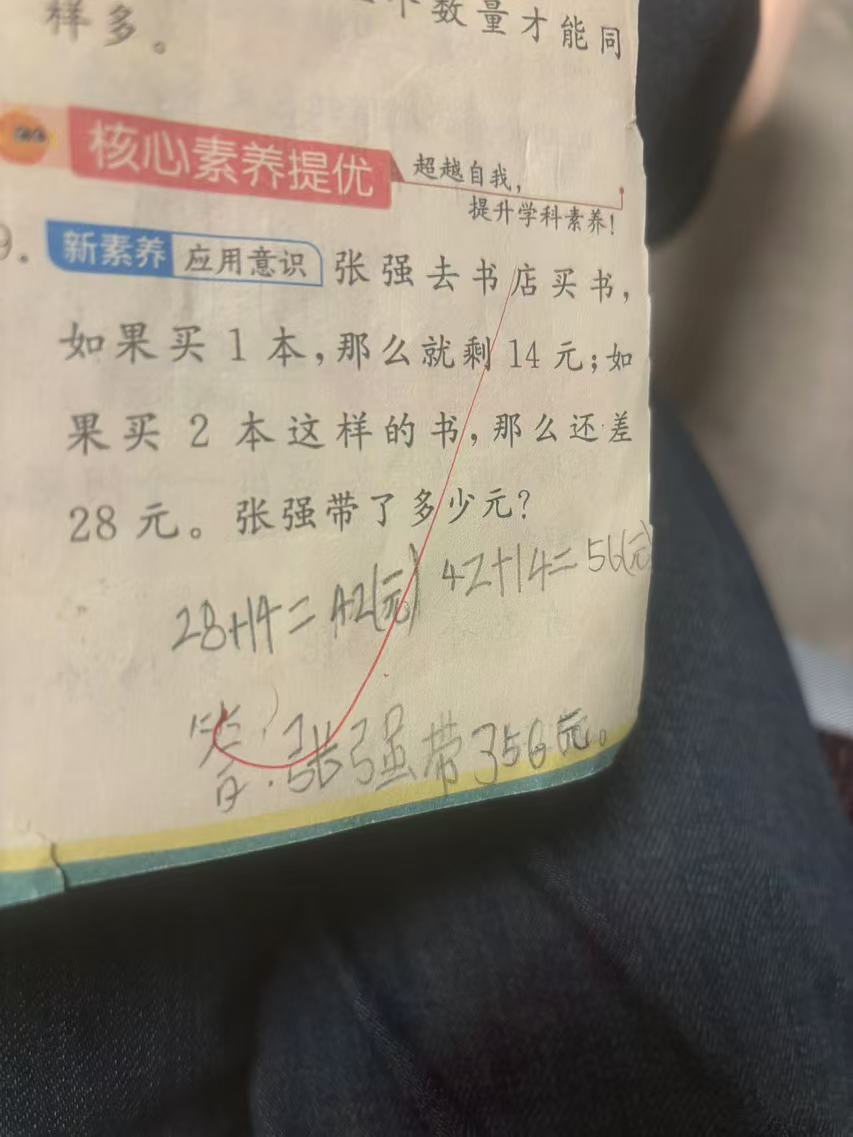 个数量才能同
样多。
核心素养提优
超越自我，
提升学科素养！
9. 新素养 应用意识 张强去书店买书，
如果买1本，那么就剩14元；如
果买2本这样的书，那么还差
28元。张强带了多少元？
28+14=42(元) 42+14=56(元)
答：张强带了56元。